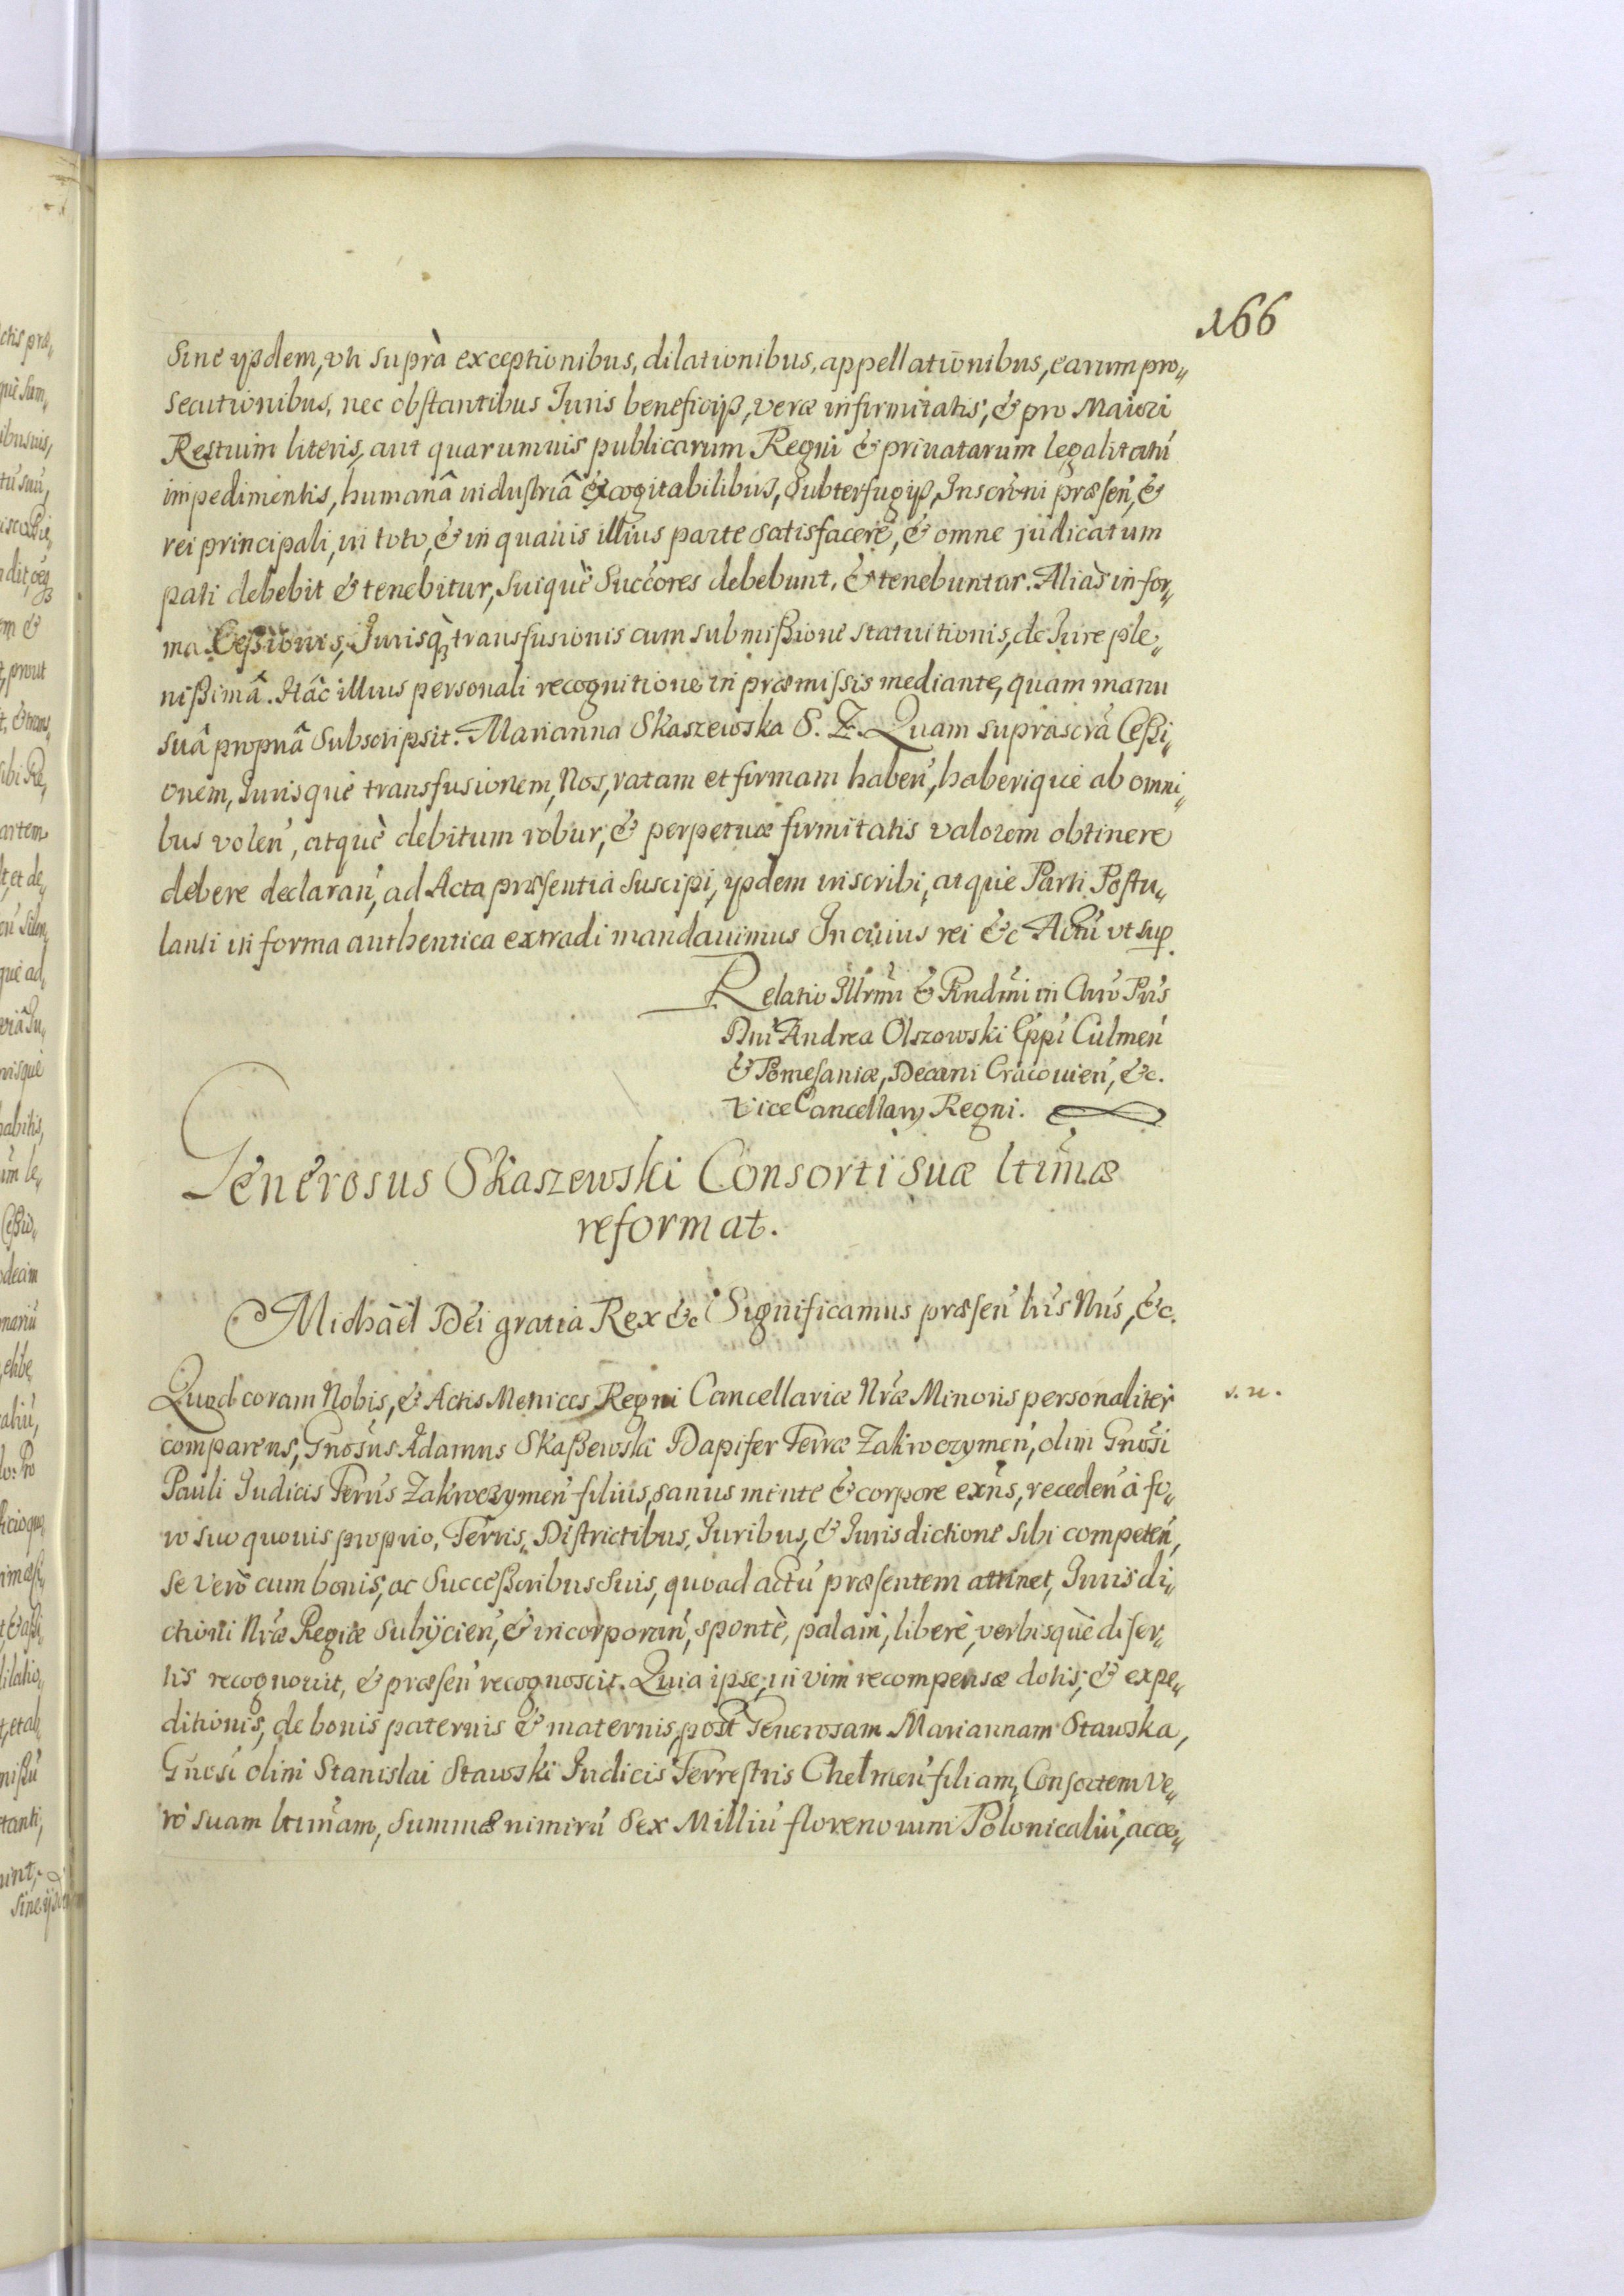 166
Sine ijsdem, uti suprà exceptionibus, dilationibus, appellationibus, earum pro„
secutionibus, nec obstantibus Juris beneficijß, veræ infirmitatis, & pro Maiori
Restuim literis, aut quarumuis publicarum Regni & priuatarum legalitatũ
impedimentis, humanâ industriâ excogitabilibus, Subterfugijß, Inscrõni præsen̄, &
rei principali, in toto, & in quauis illius parte satisfacere, & omne judicatum
pati debebit & tenebitur, Suiquè Succ̃ores debebunt, & tenebuntur. Aliàs in for„
ma Ceßionis, Jurisq̃ transfusionis cum submißione statuitionis, de Jure ple„
nißimâ. Hâc illius personali recognitione in præmissis mediante, quam manu
suâ propriâ Subscripsit. Marianna Skaszewska S. Z. Quam suprascrã Ceßi„
onem, Jurisque transfusionem, Nos, ratam et firmam haben̄, haberique ab omni„
bus volen̄, atquè debitum robur, & perpetuæ firmitatis valorem obtinere
debere declaran̄, ad Acta præsentia suscipi, ijsdem inscribi, atque Parti Postu„
lanti in forma authentica extradi mandauimus In cuius rei &c Actũ ut sup.
Relatio Illr̃mi & Rnd̃mi in Chr̃o Pr̃is
Dn̄i Andrea Olszowski Ep̃pi Culmen̄
& Pomesaniæ, Decani Cracouien̄, &c.
ViceCancellarij Regni.
Generosus Skaszewski Consorti suæ lt̃imæ
reformat.
Michaël Dei gratia Rex &c Significamus præsen̄ lr̃is Nr̃is, &c.
Quod coram Nobis, & Actis Metrices Regni Cancellariæ Nr̃æ Minoris personaliter
v. n.
comparens, Gnosũs Adamus Skaßewski Dapifer Terræ Zakroczymen̄, olim Gnosĩ
Pauli Judicis Terr̃is Zakroczymen̄ filius, sanus mente & corpore exñs, receden̄ à fo„
ro suo quouis proprio, Terris, Districtibus, Juribus, & Jurisdictione sibi competen̄,
se verò cum bonis, ac Succeßoribus Suis, quoad actũ præsentem attinet, Jurisdi„
ctioni Nr̃æ Regiæ Subijcien̄, & incorporan̄, spontè, palam, liberè, verbisquè diser„
tis recognouit, & præsen̄ recognoscit. Quia ipse, in vim recompensæ dotis, & expe„
ditionis, de bonis paternis & maternis, post Generosam Mariannam Stawska,
Gnosĩ olim Stanislai Stawski Judicis Terrestris Chelmen̄ filiam, Consortem ve„
rò suam lt̃imam, Summæ nimirũ Sex Milliũ florenorum Polonicaliũ, acce„